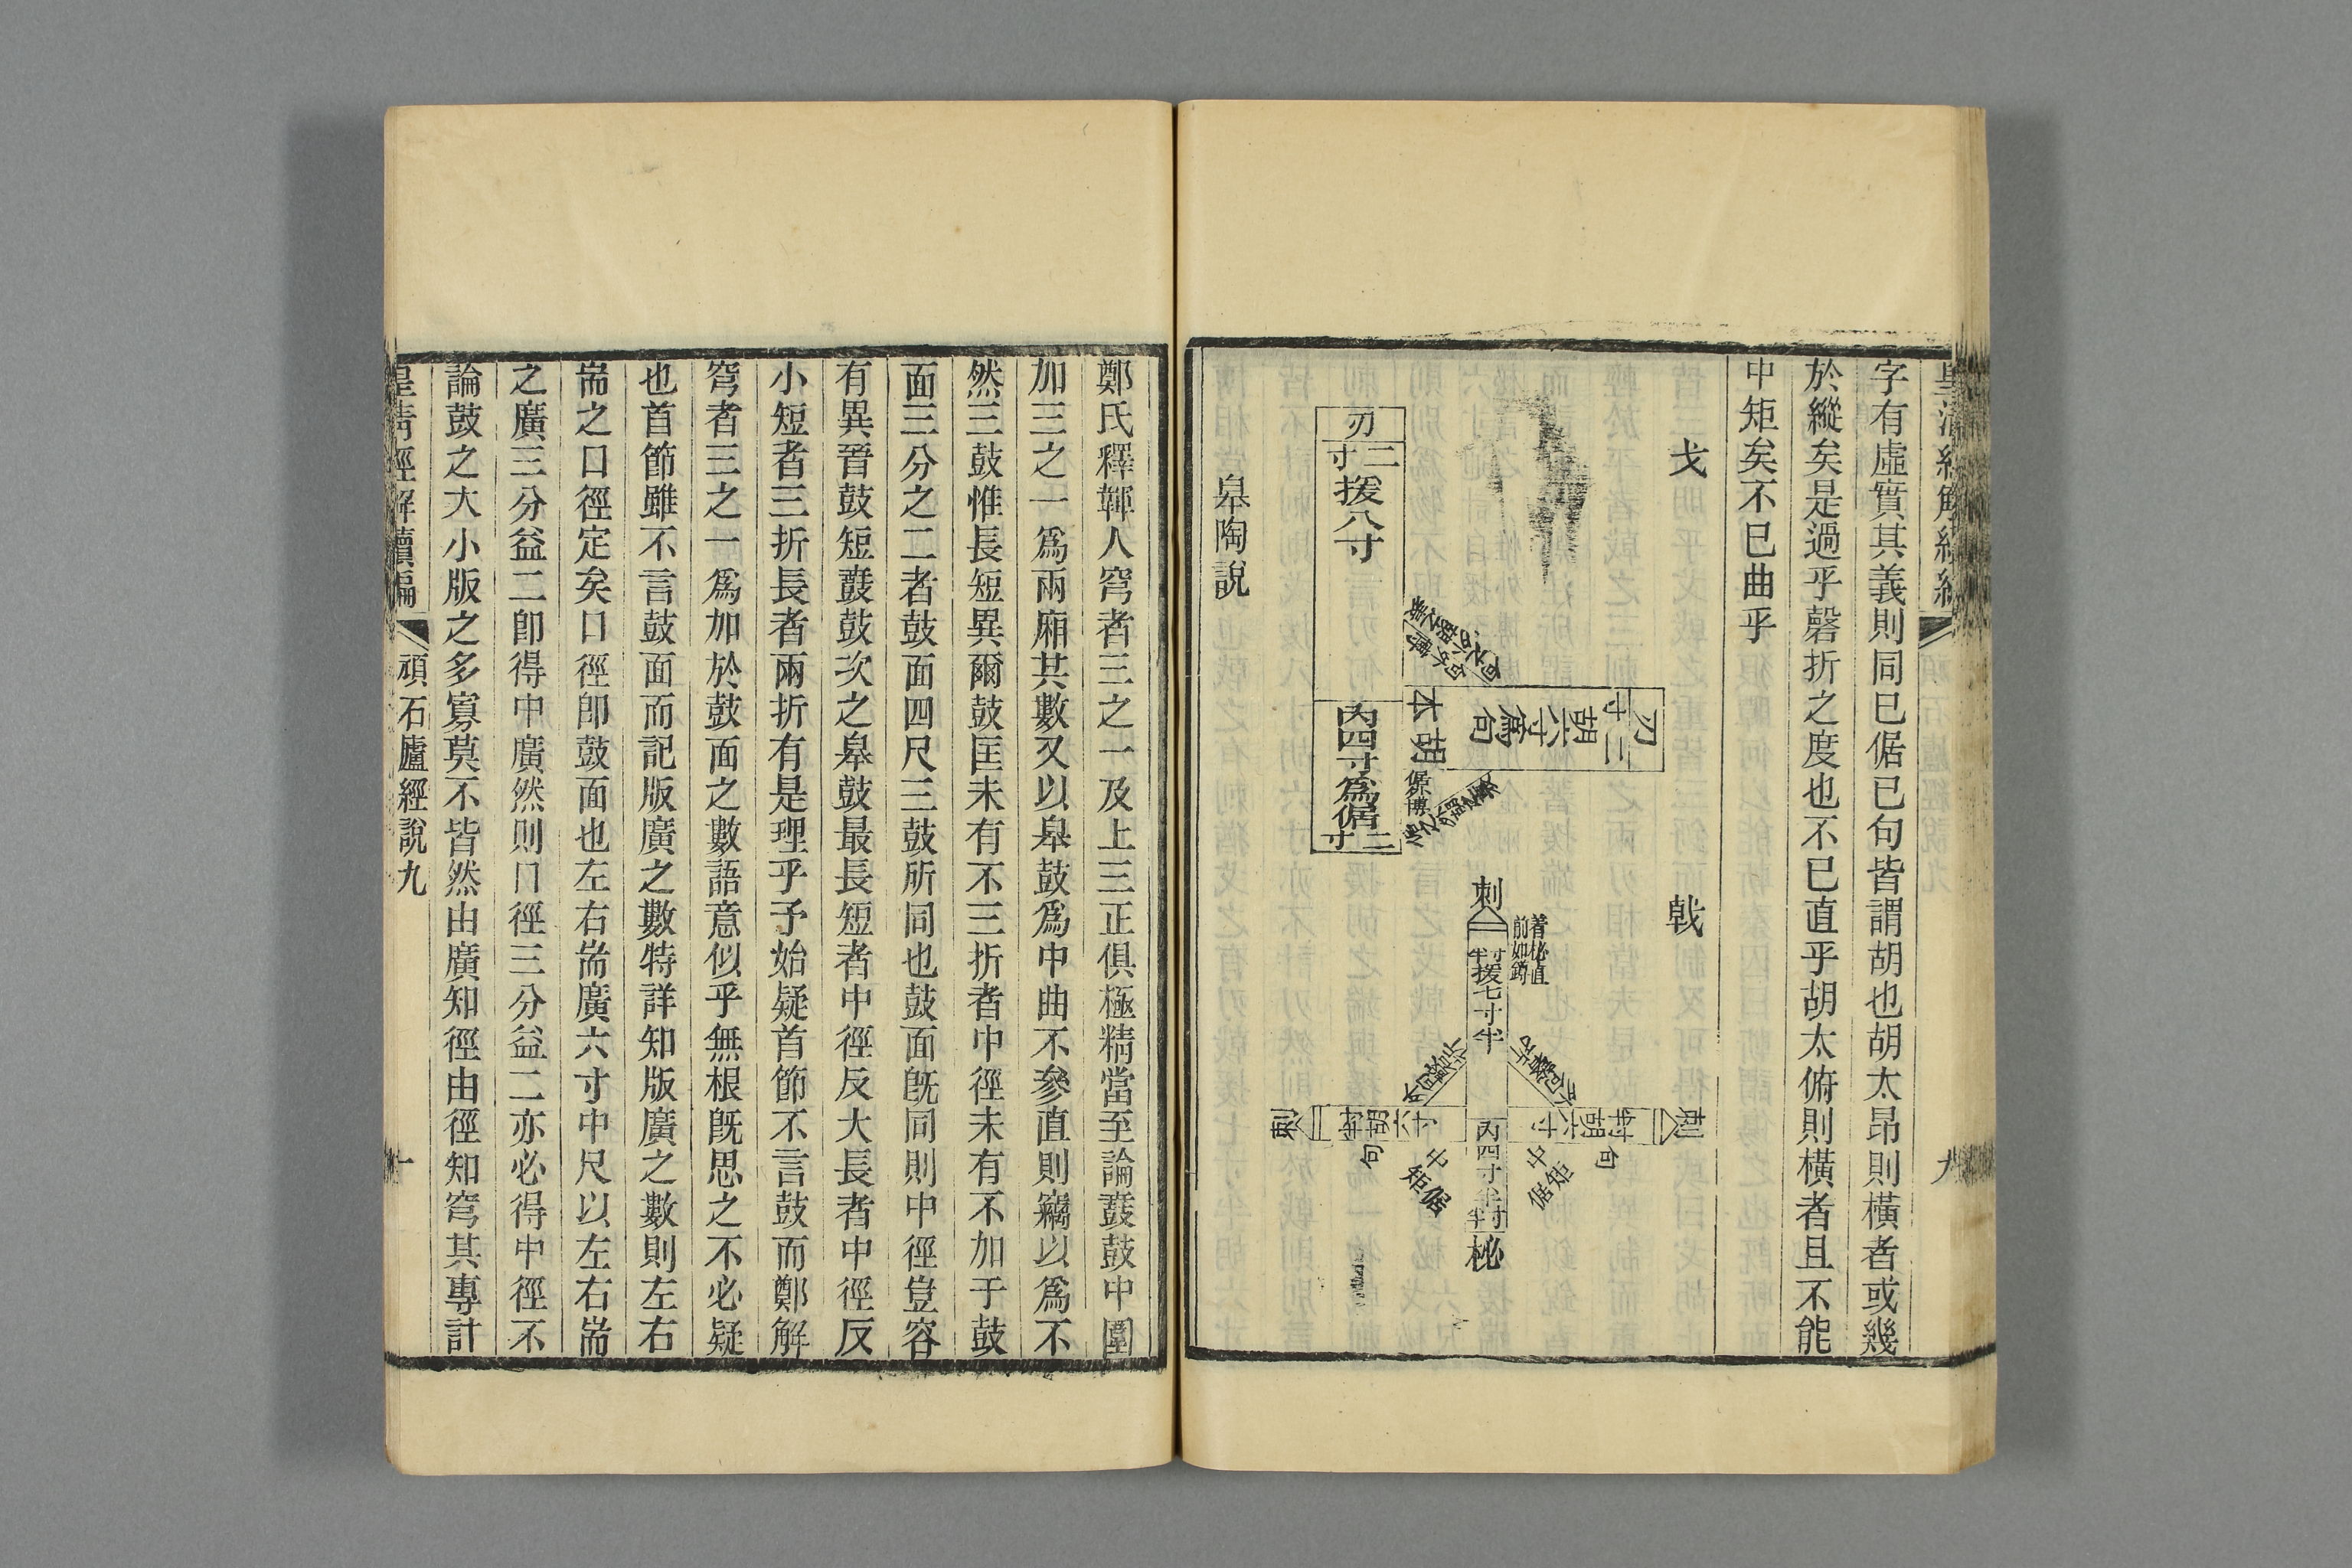 字有虛實其義則同已倨已句皆謂胡也胡太昂則橫者或幾
於縱矣是過乎磬折之度也不已直乎胡太俯則橫者且不能
中矩矣不已曲乎
戈
戟
刃
二寸
援八寸
內四寸爲倨
二寸
本胡
胡六寸爲句
刃二寸
刺
著柲直前如鐏
寸半
援七寸半
內四寸半
寸半
柲
刺
寸半
胡六寸
句
中矩倨
刺
寸半
胡六寸
句
中矩倨
皋陶說
鄭氏釋韗人穹者三之一及上三正俱極精當至論鼖鼓中圍
加三之一爲兩廂其數又以皋鼓爲中曲不參直則竊以爲不
然三鼓惟長短異爾鼓匡未有不三折者中徑未有不加于鼓
面三分之二者鼓面四尺三鼓所同也鼓面旣同則中徑豈容
有異晉鼓短鼖鼓次之皋鼓最長短者中徑反大長者中徑反
小短者三折長者兩折有是理乎予始疑首節不言鼓而鄭解
穹者三之一爲加於鼓面之數語意似乎無根旣思之不必疑
也首節雖不言鼓面而記版廣之數特詳知版廣之數則左右
耑之口徑定矣口徑卽鼓面也左右耑廣六寸中尺以左右耑
之廣三分益二卽得中廣然則口徑三分益二亦必得中徑不
論鼓之大小版之多寡莫不皆然由廣知徑由徑知穹其專計
皇淸經解續編
頑石廬經說九